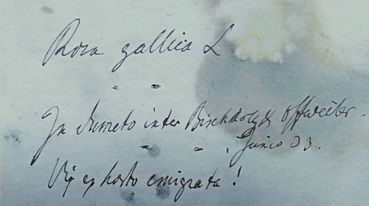 Rosa gallica L
In dumeto inter Bischdorf & Offweiler.
Junio 33.
Vix ex horto emigrata!